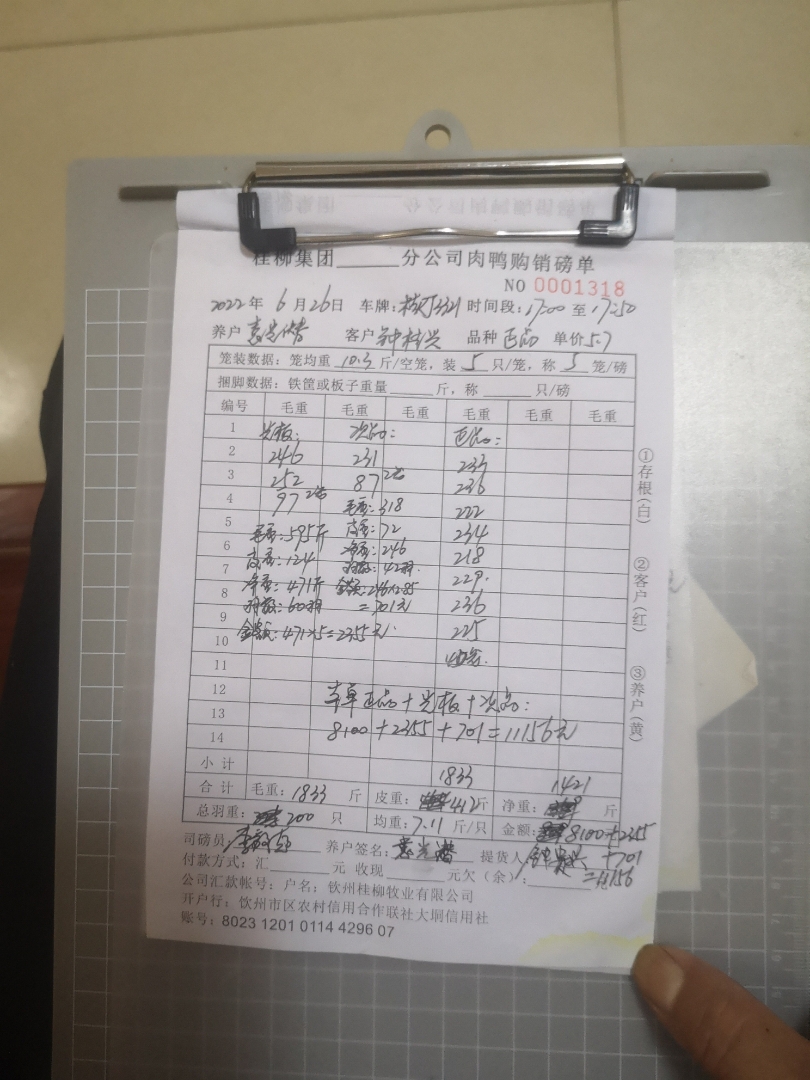 桂柳集团______分公司肉鸭购销磅单
NO 0001318
2022年 6月26日 车牌: 时间段:17:00至17:50
养户 客户 钟桂兴 品种 正品 单价5.7
笼装数据:笼均重 10.3 斤/空笼,装 5 只/笼,称 5 笼/磅
捆脚数据:铁筐或板子重量______斤,称______只/磅
编号 毛重 毛重 毛重 毛重 毛重 毛重
1 光板: 次品: 正品:
2 246 231 233
3 252 87 2笼 236
4 97 2笼 毛重:318 222
5 毛重:595斤 皮重:72 234
6 皮重:124 净重:246 218
7 净重:471斤 羽数:42羽. 229.
8 羽数:60羽 金额:246×2.85 236
9 =701元 225
10 金额:471×5=2355元. 40笼.
11
12 本单正品+光板+次品:
13 8100+2355+701=11156元
14
小计 1833 1421
合计 毛重:1833 斤 皮重:412斤 净重: 斤
总羽重:200 只 均重:7.11 斤/只 金额:8100+2355
+701
=11156
司磅员 养户签名: 提货人
付款方式:汇______元 收现______元欠(余):______
公司汇款帐号:户名:钦州桂柳牧业有限公司
开户行:钦州市区农村信用合作联社大垌信用社
账号:8023 1201 0114 4296 07
①存根(白)
②客户(红)
③养户(黄)